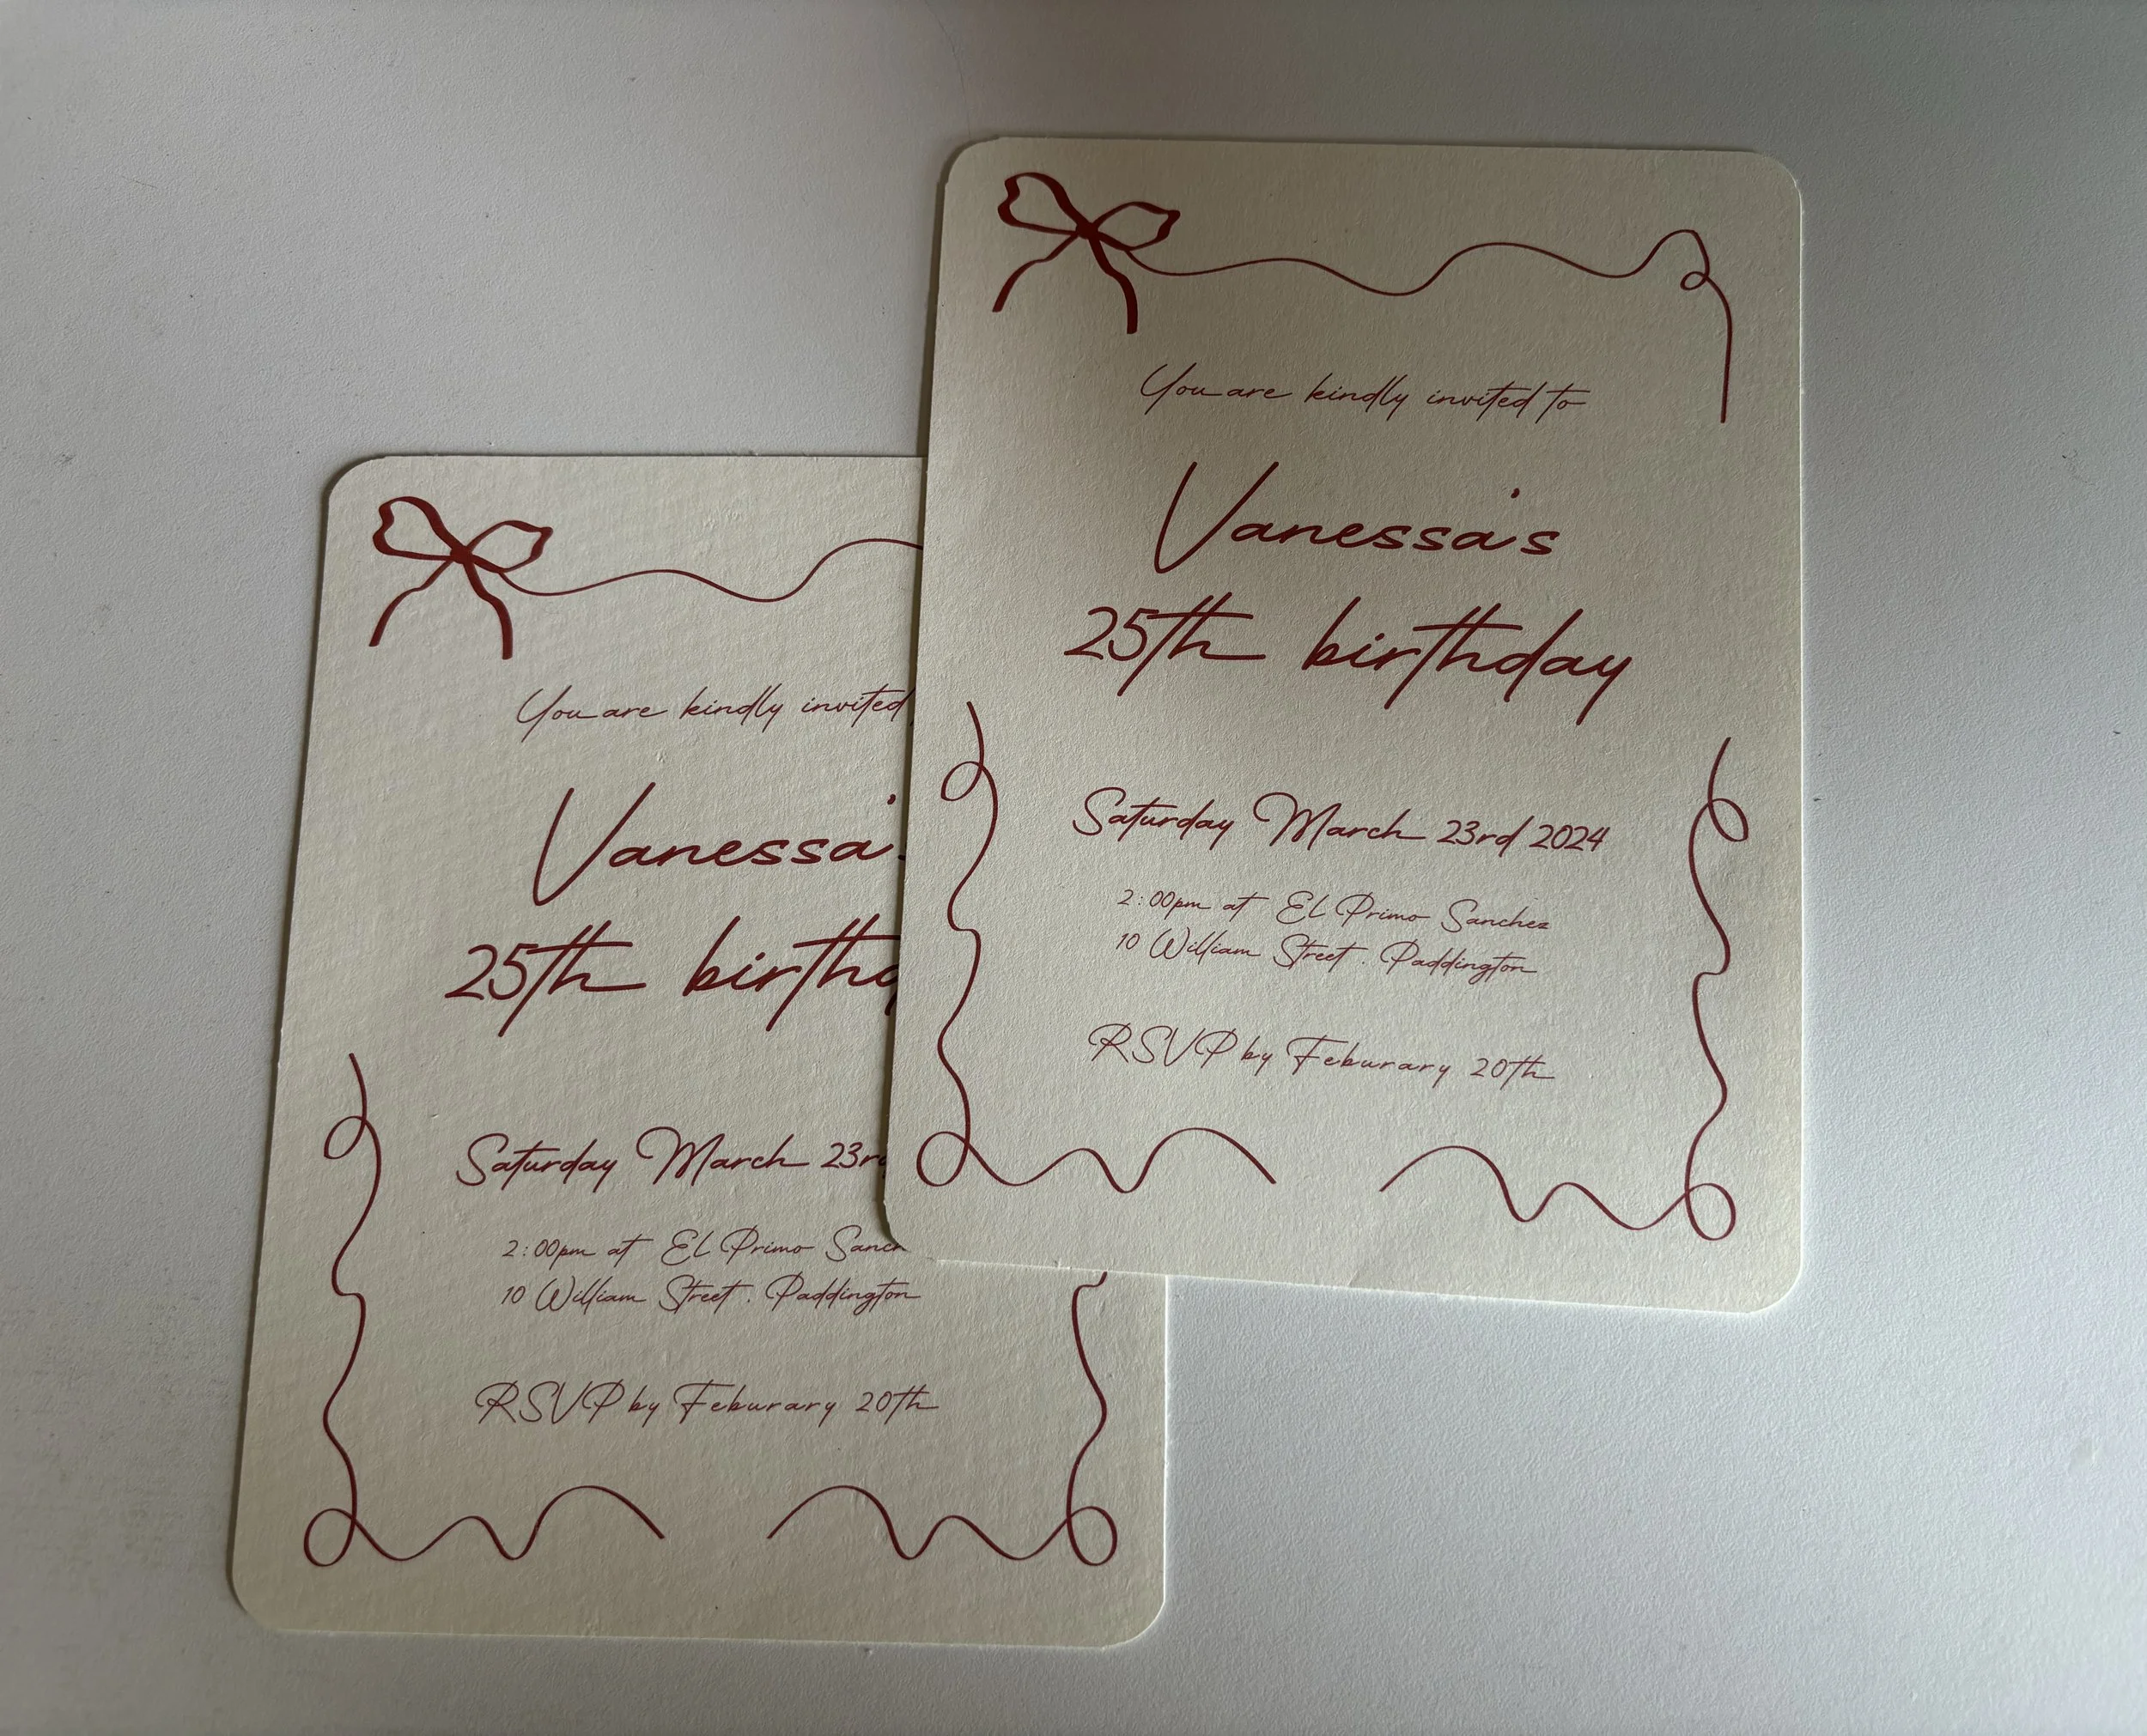 You are kindly invited to
Vanessa's
25th birthday
Saturday March 23rd 2024
2:00pm at EL Primo Sanchez
10 William Street . Paddington
RSVP by Feburary 20th
You are kindly invited
Vanessa'
25th birthd
Saturday March 23rd
2:00pm at EL Primo Sanch
10 William Street . Paddington
RSVP by Feburary 20th